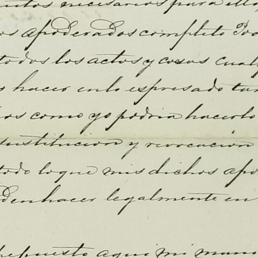 ntos necesarios para ello
os apoderados completo Po
todos los actos y cosas cual
s hacer en lo espresado tan
ios como yo podria hacerlo
sustitucion y revocacion
todo lo que mis dichos apo
den hacer legalmente en
he puesto aqui mi mano